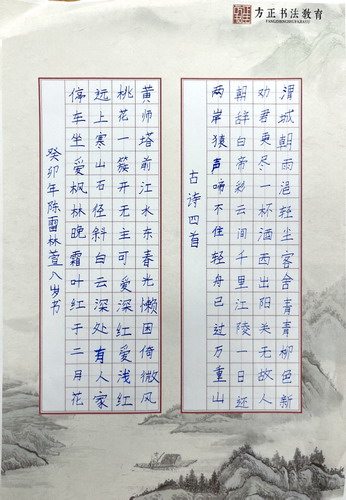 方正书法教育
FANGZHENGSHUFAJIAOYU
渭城朝雨浥轻尘客舍青青柳色新
劝君更尽一杯酒西出阳关无故人
朝辞白帝彩云间千里江陵一日还
两岸猿声啼不住轻舟已过万重山
古诗四首
黄师塔前江水东春光懒困倚微风
桃花一簇开无主可爱深红爱浅红
远上寒山石径斜白云深处有人家
停车坐爱枫林晚霜叶红于二月花
癸卯年陈雷林萱八岁书